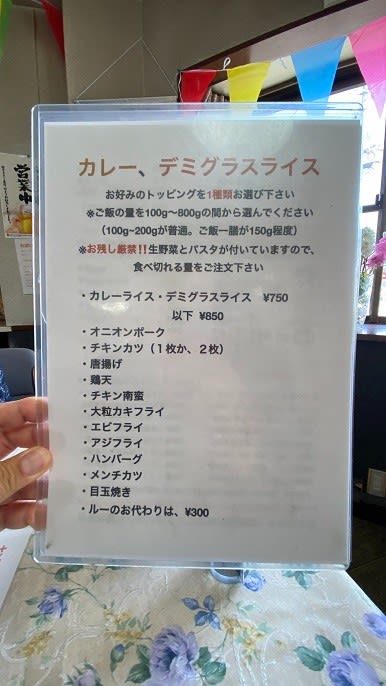 営業中
カレー、デミグラスライス
お好みのトッピングを1種類お選び下さい
※ご飯の量を100g～800gの間から選んでください
（100g~200gが普通。ご飯一膳が150g程度）
※お残し厳禁!!生野菜とパスタが付いていますので、
食べ切れる量をご注文下さい
・カレーライス・デミグラスライス ¥750
以下 ¥850
・オニオンポーク
・チキンカツ（１枚か、２枚）
・唐揚げ
・鶏天
・チキン南蛮
・大粒カキフライ
・エビフライ
・アジフライ
・ハンバーグ
・メンチカツ
・目玉焼き
・ルーのお代わりは、¥300